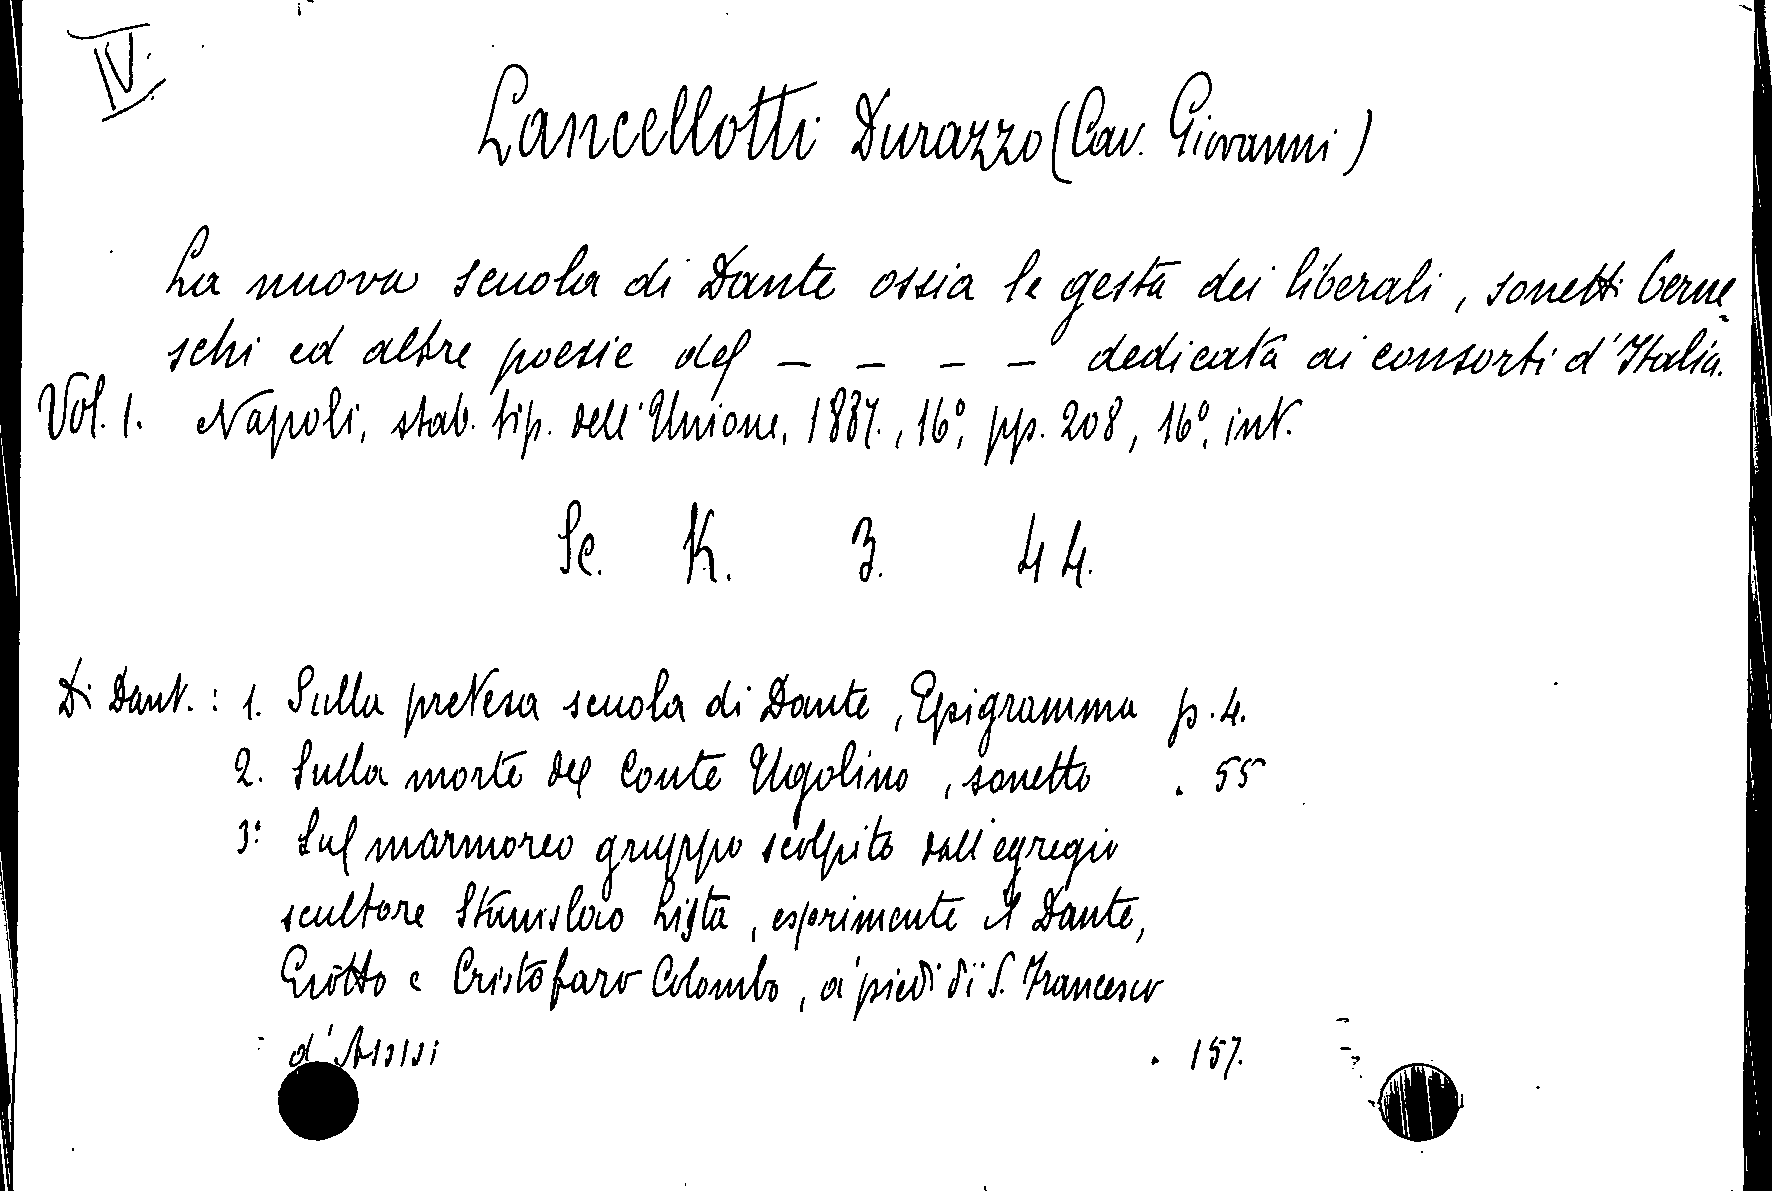 IV.
Lancellotti Durazzo (Cav. Giovanni)
La nuova scuola di Dante ossia le gesta dei liberali, sonetti berne
schi ed altre poesie del _ _ _ _ dedicata ai consorti d'Italia.
Vol. 1. Napoli, stab. tip. dell'Unione, 1887., 16°, pp. 208, 16°, int.
Sc. K. 3. 44.
Di Dant. : 1. Sulla pretesa scuola di Dante, Epigramma p. 4.
2. Sulla morte del Conte Ugolino, sonetto . 55
3° Sul marmoreo gruppo scolpito dall'egregio
scultore Stanislao Lista, esprimente il Dante,
Giotto e Cristofaro Colombo, a' piedi di S. Francesco
d'Assisi . 157.